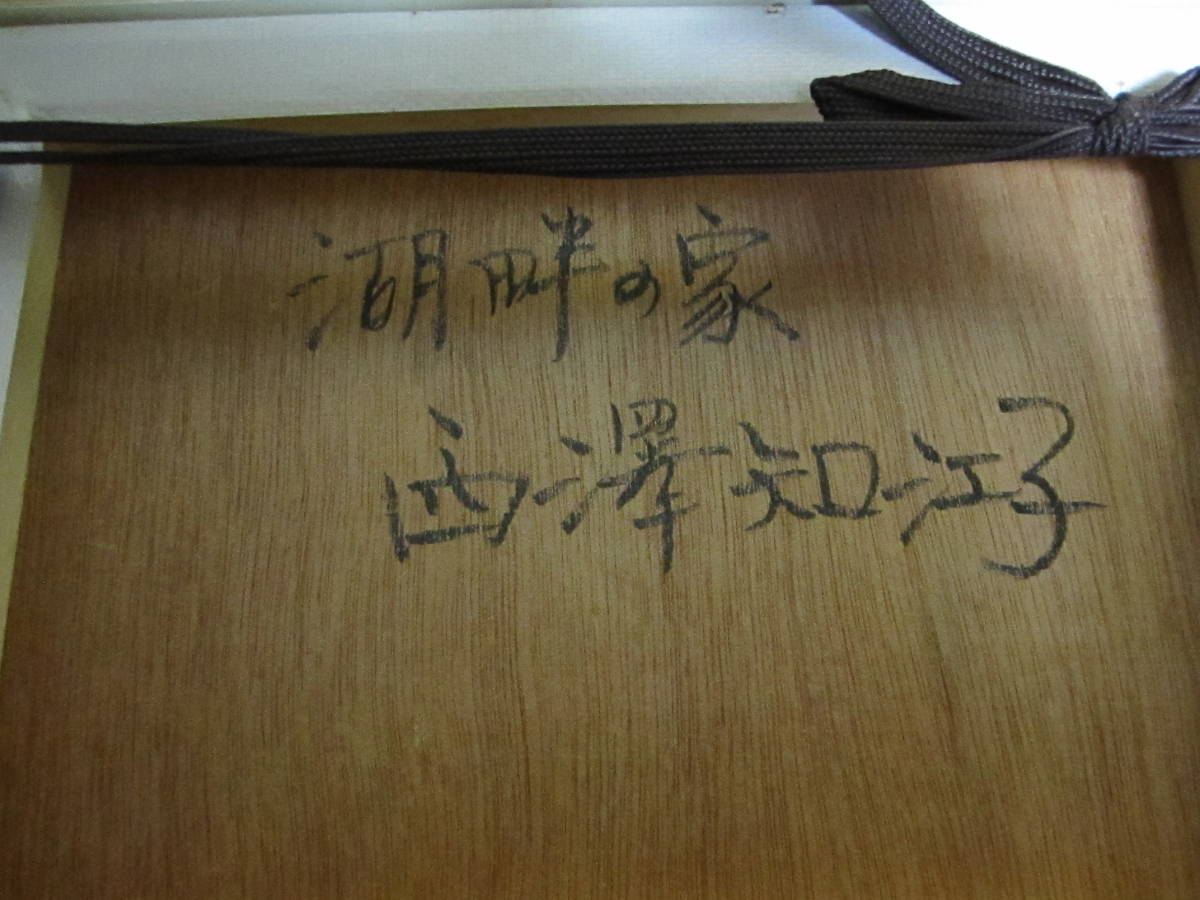 湖畔の家
西澤知江子